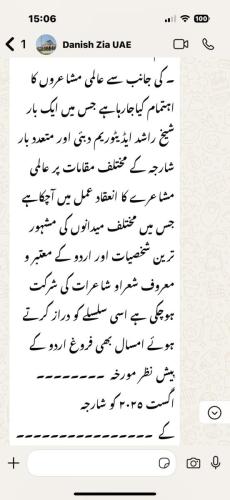 15:06
100
1
Danish Zia UAE
۔ کی جانب سے عالمی مشاعروں کا
اہتمام کیا جارہا ہے جس میں ایک بار
شیخ راشد ایڈیٹوریم دبئی اور متعدد بار
شارجہ کے مختلف مقامات پر عالمی
مشاعرے کا انعقاد عمل میں آچکا ہے
جس میں مختلف میدانوں کی مشہور
ترین شخصیات اور اردو کے معتبر و
معروف شعراو شاعرات کی شرکت
ہوچکی ہے اسی سلسلے کو دراز کرتے
ہوئے امسال بھی فروغ اردو کے
پیش نظر مورخہ ۔۔۔۔۔۔۔۔
اگست ۲۰۲۵ کو شارجہ
کے ۔۔۔۔۔۔۔۔۔۔۔۔۔۔۔۔